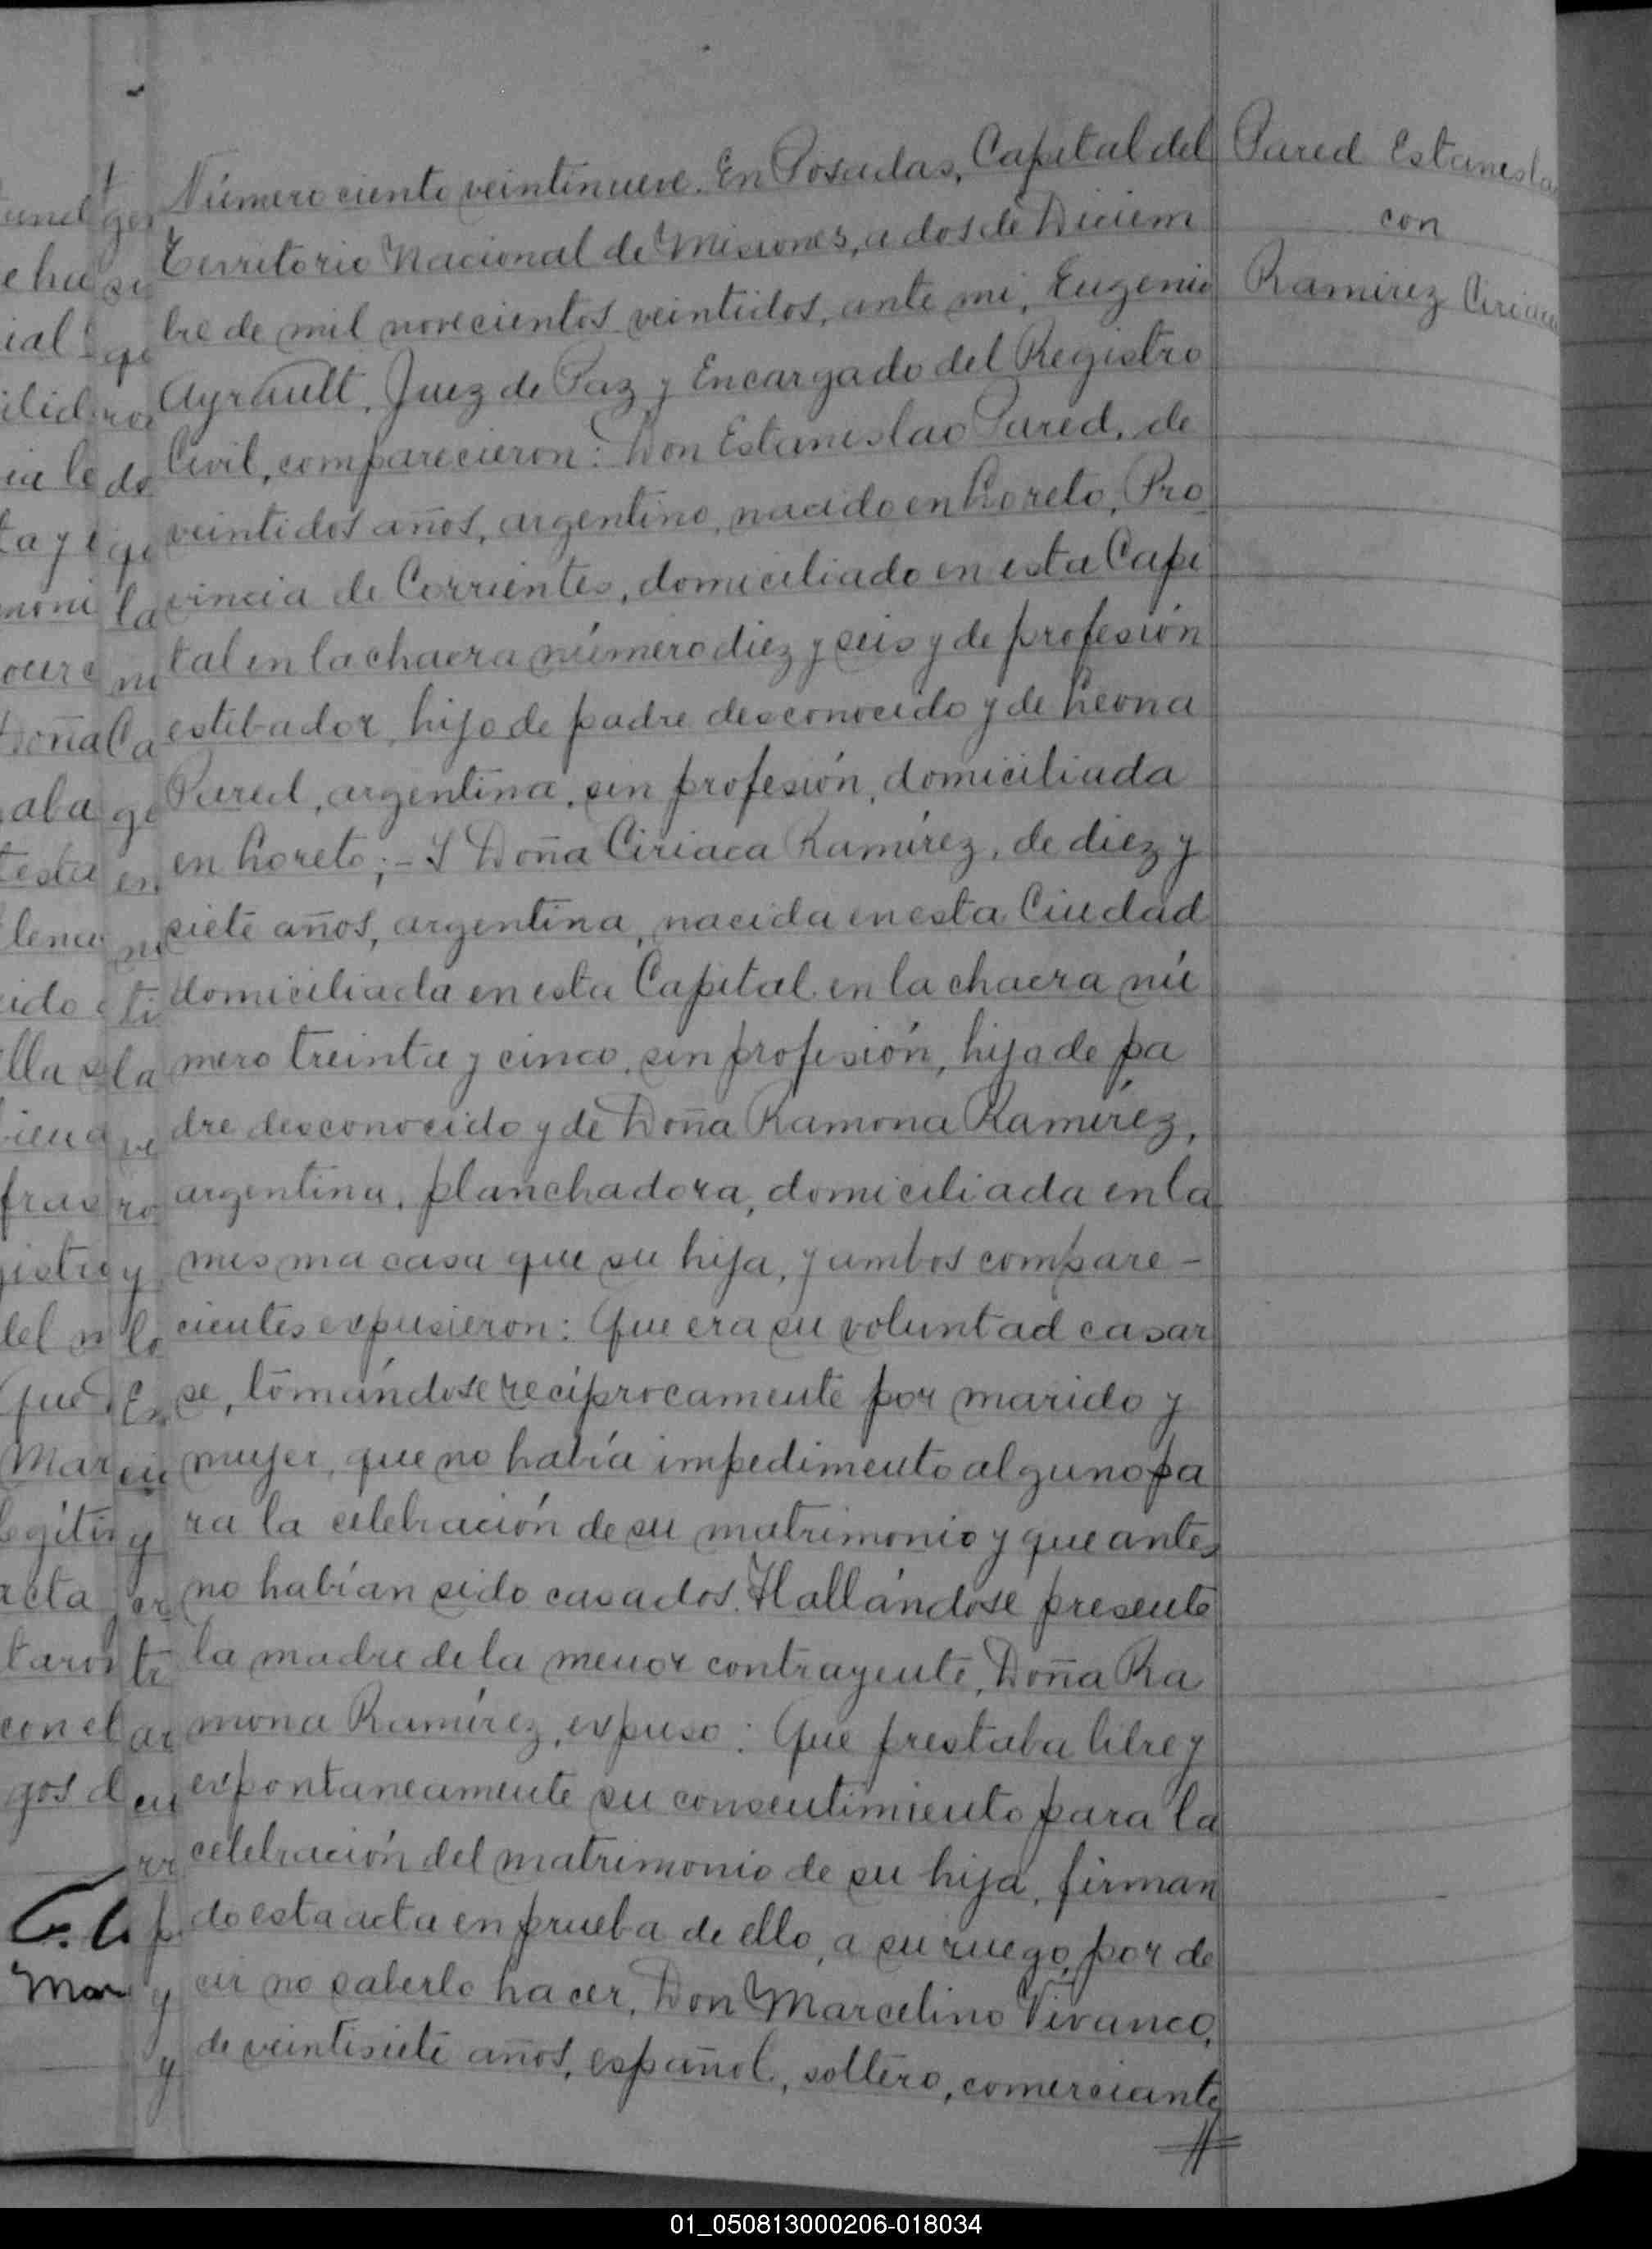 Número ciento veintinueve. En Posadas, Capital del
Territorio Nacional de Misiones, a dos de Diciem
bre de mil novecientos veintidos, ante mi, Eugenio
Ayrault, Juez de Paz y Encargado del Registro
Civil, comparecieron: Don Estanislao Pared, de
veintidos años, argentino, nacido en Loreto, Pro
vincia de Corrientes, domiciliado en esta Capi
tal en la chacra número diez y seis y de profesión
estibador, hijo de padre desconocido y de Leona
Pared, argentina, sin profesión, domiciliada
en Loreto; - Y Doña Ciriaca Ramírez, de diez y
siete años, argentina, nacida en esta Ciudad
domiciliada en esta Capital en la chacra nú
mero treinta y cinco, sin profesión, hija de pa
dre desconocido y de Doña Ramona Ramírez,
argentina, planchadora, domiciliada en la
misma casa que su hija, y ambos compare-
cientes expusieron: Que era su voluntad casar
se, tomándose recíprocamente por marido y
mujer, que no había impedimento alguno pa
ra la celebración de su matrimonio y que antes
no habían sido casados. Hallándose presente
la madre de la menor contrayente, Doña Ra
mona Ramírez, expuso: Que prestaba libre y
expontaneamente su consentimiento para la
celebración del matrimonio de su hija, firman
do esta acta en prueba de ello, a su ruego, por de
cir no saberlo hacer, Don Marcelino Vivanco,
de veintisiete años, español, soltero, comerciante
Pared Estanisla
con
Ramirez Ciriaca
01_050813000206-018034